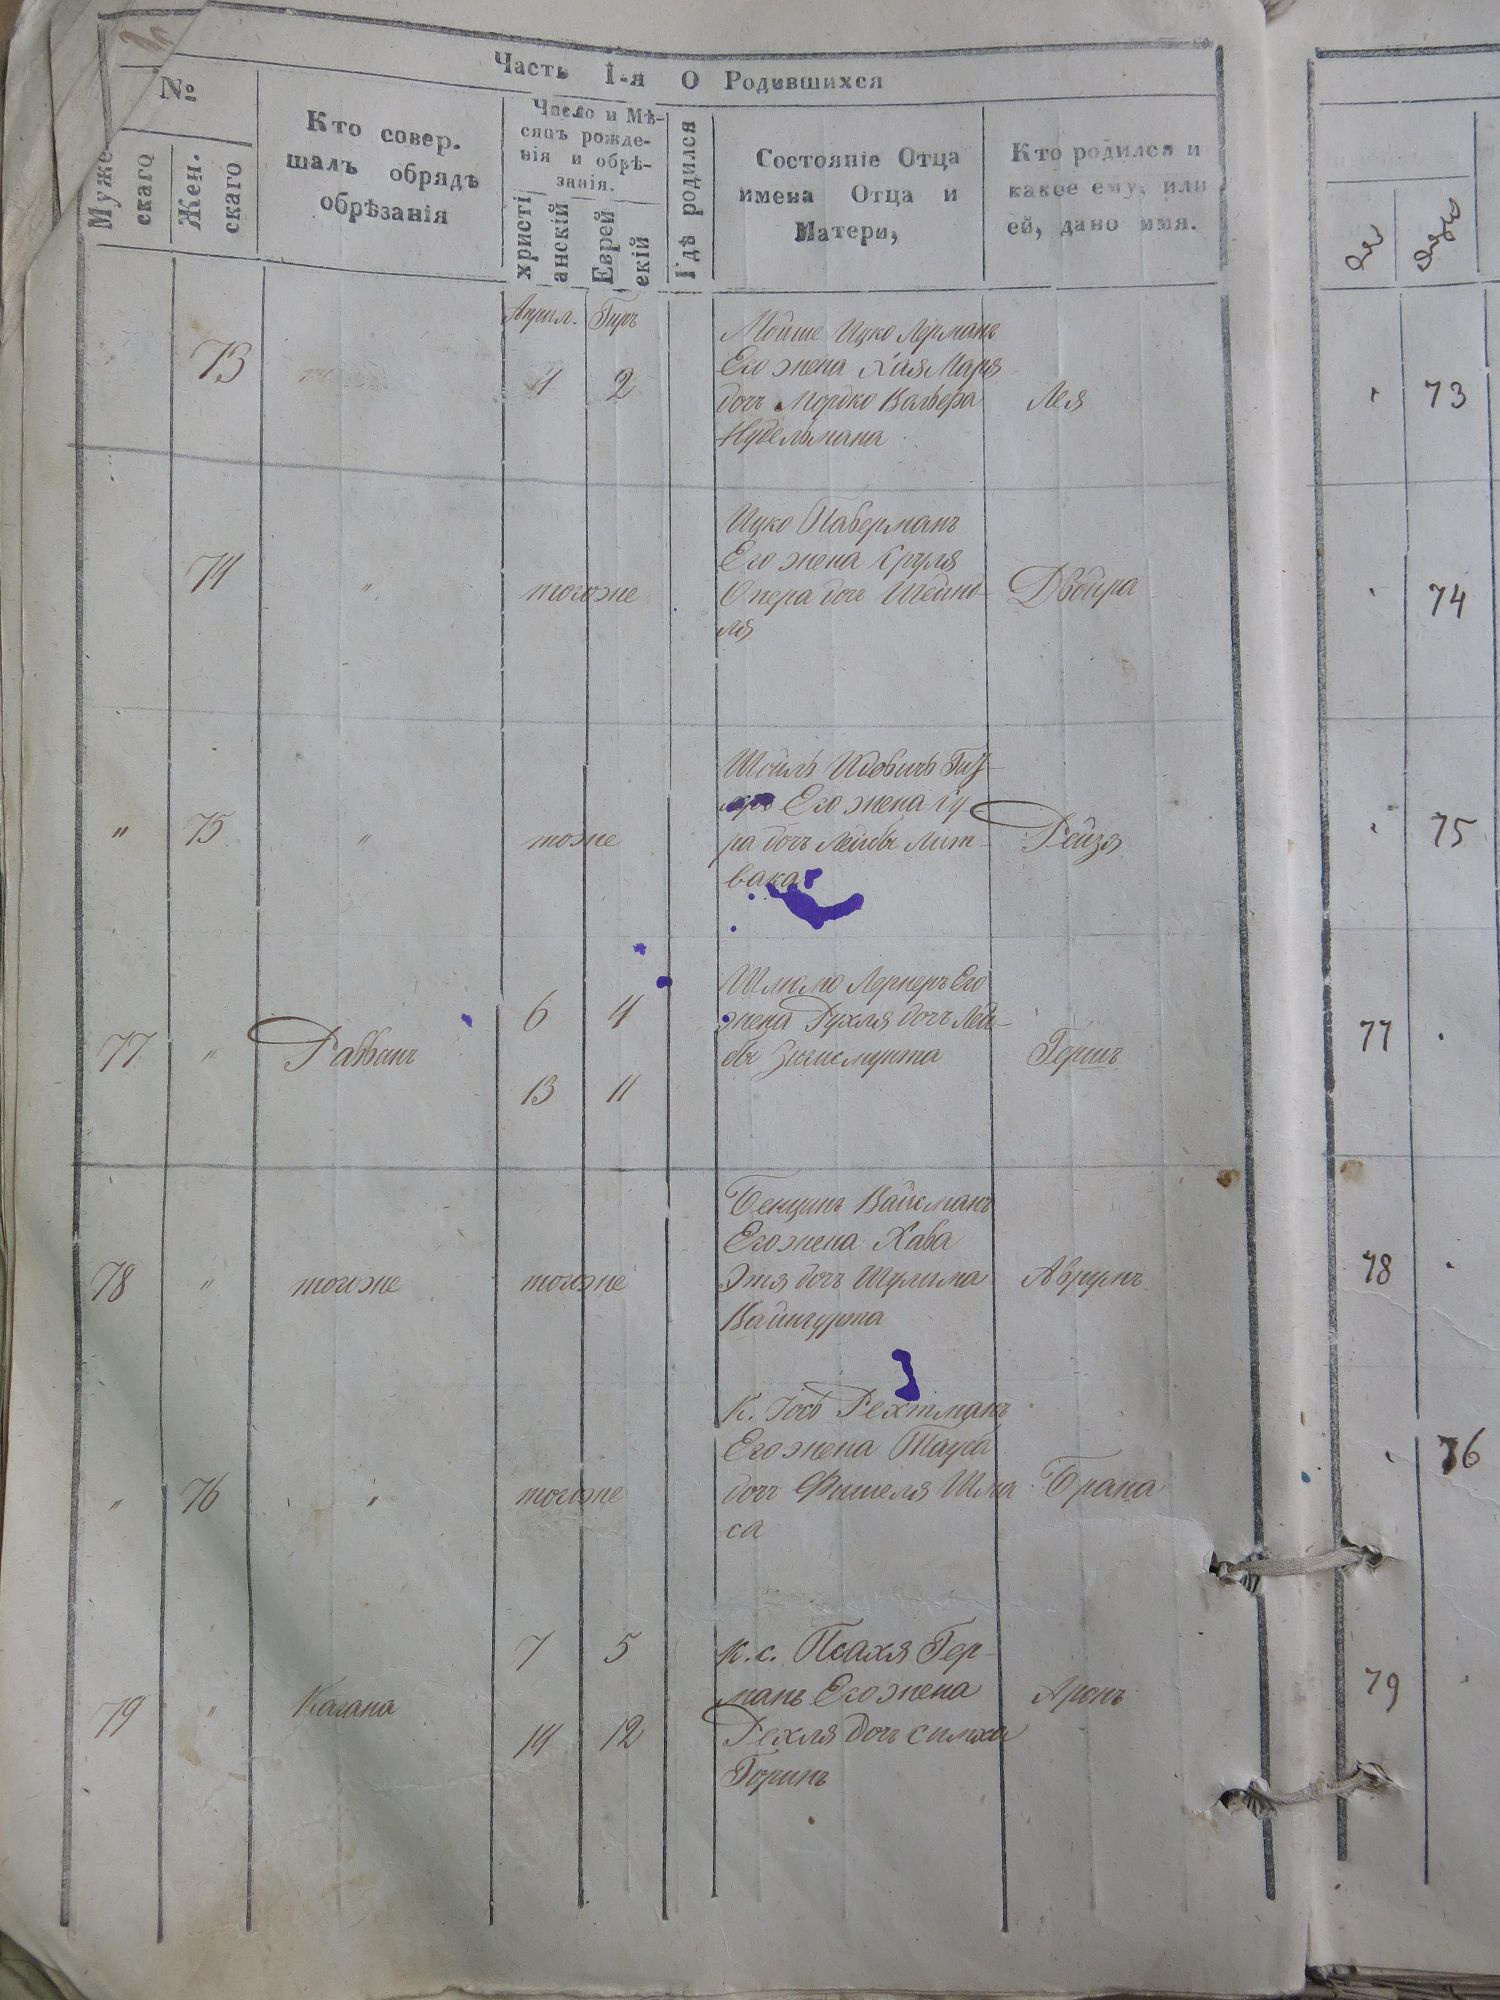 Часть I-я О Родившихся
№
Мужескаго
Жен.
скаго
Кто совер.
шалъ обрядъ
обрѣзанія
Число и Мѣ-
сяцъ рожде-
нія и обрѣ-
занія.
христі
анскій
Еврей
скій
Гдѣ родился
Состояніе Отца
имена Отца и
Матери,
Кто родился и
какое ему, или
ей, дано имя.
Април.
73
4
2
Мойше Ицко Лерманъ
Его жена Хая Маря
дочь Мордко Вольфа
Нудельмана
Лея
73
74
"
тогоже
Ицко Таберманъ
Его жена Сруля
дочь
Двойра
74
"
75
"
тоже
Его жена Су
ра дочь Лейбы Лит-
вака
Рейзя
75
77
"
Раввинъ
6
4
13
11
Шлиомо Лернеръ Его
жена Рухля дочь Лей-
бы Зыисмунта
Гершъ
77
78
"
тогоже
тогоже
Бенционъ Вайсманъ
Его жена Хава
Этя дочь Шулима
Вайнгурта
Аврумъ
78
"
76
"
тогоже
К. Іосъ Рехтманъ
Его жена Тауба
дочь Фишеля Шма
са
Брана
76
79
"
Кагана
7
5
14
12
к. с. Псахя Гер-
манъ Его жена
Рехля дочь Симхи
Горинъ
Аронъ
79